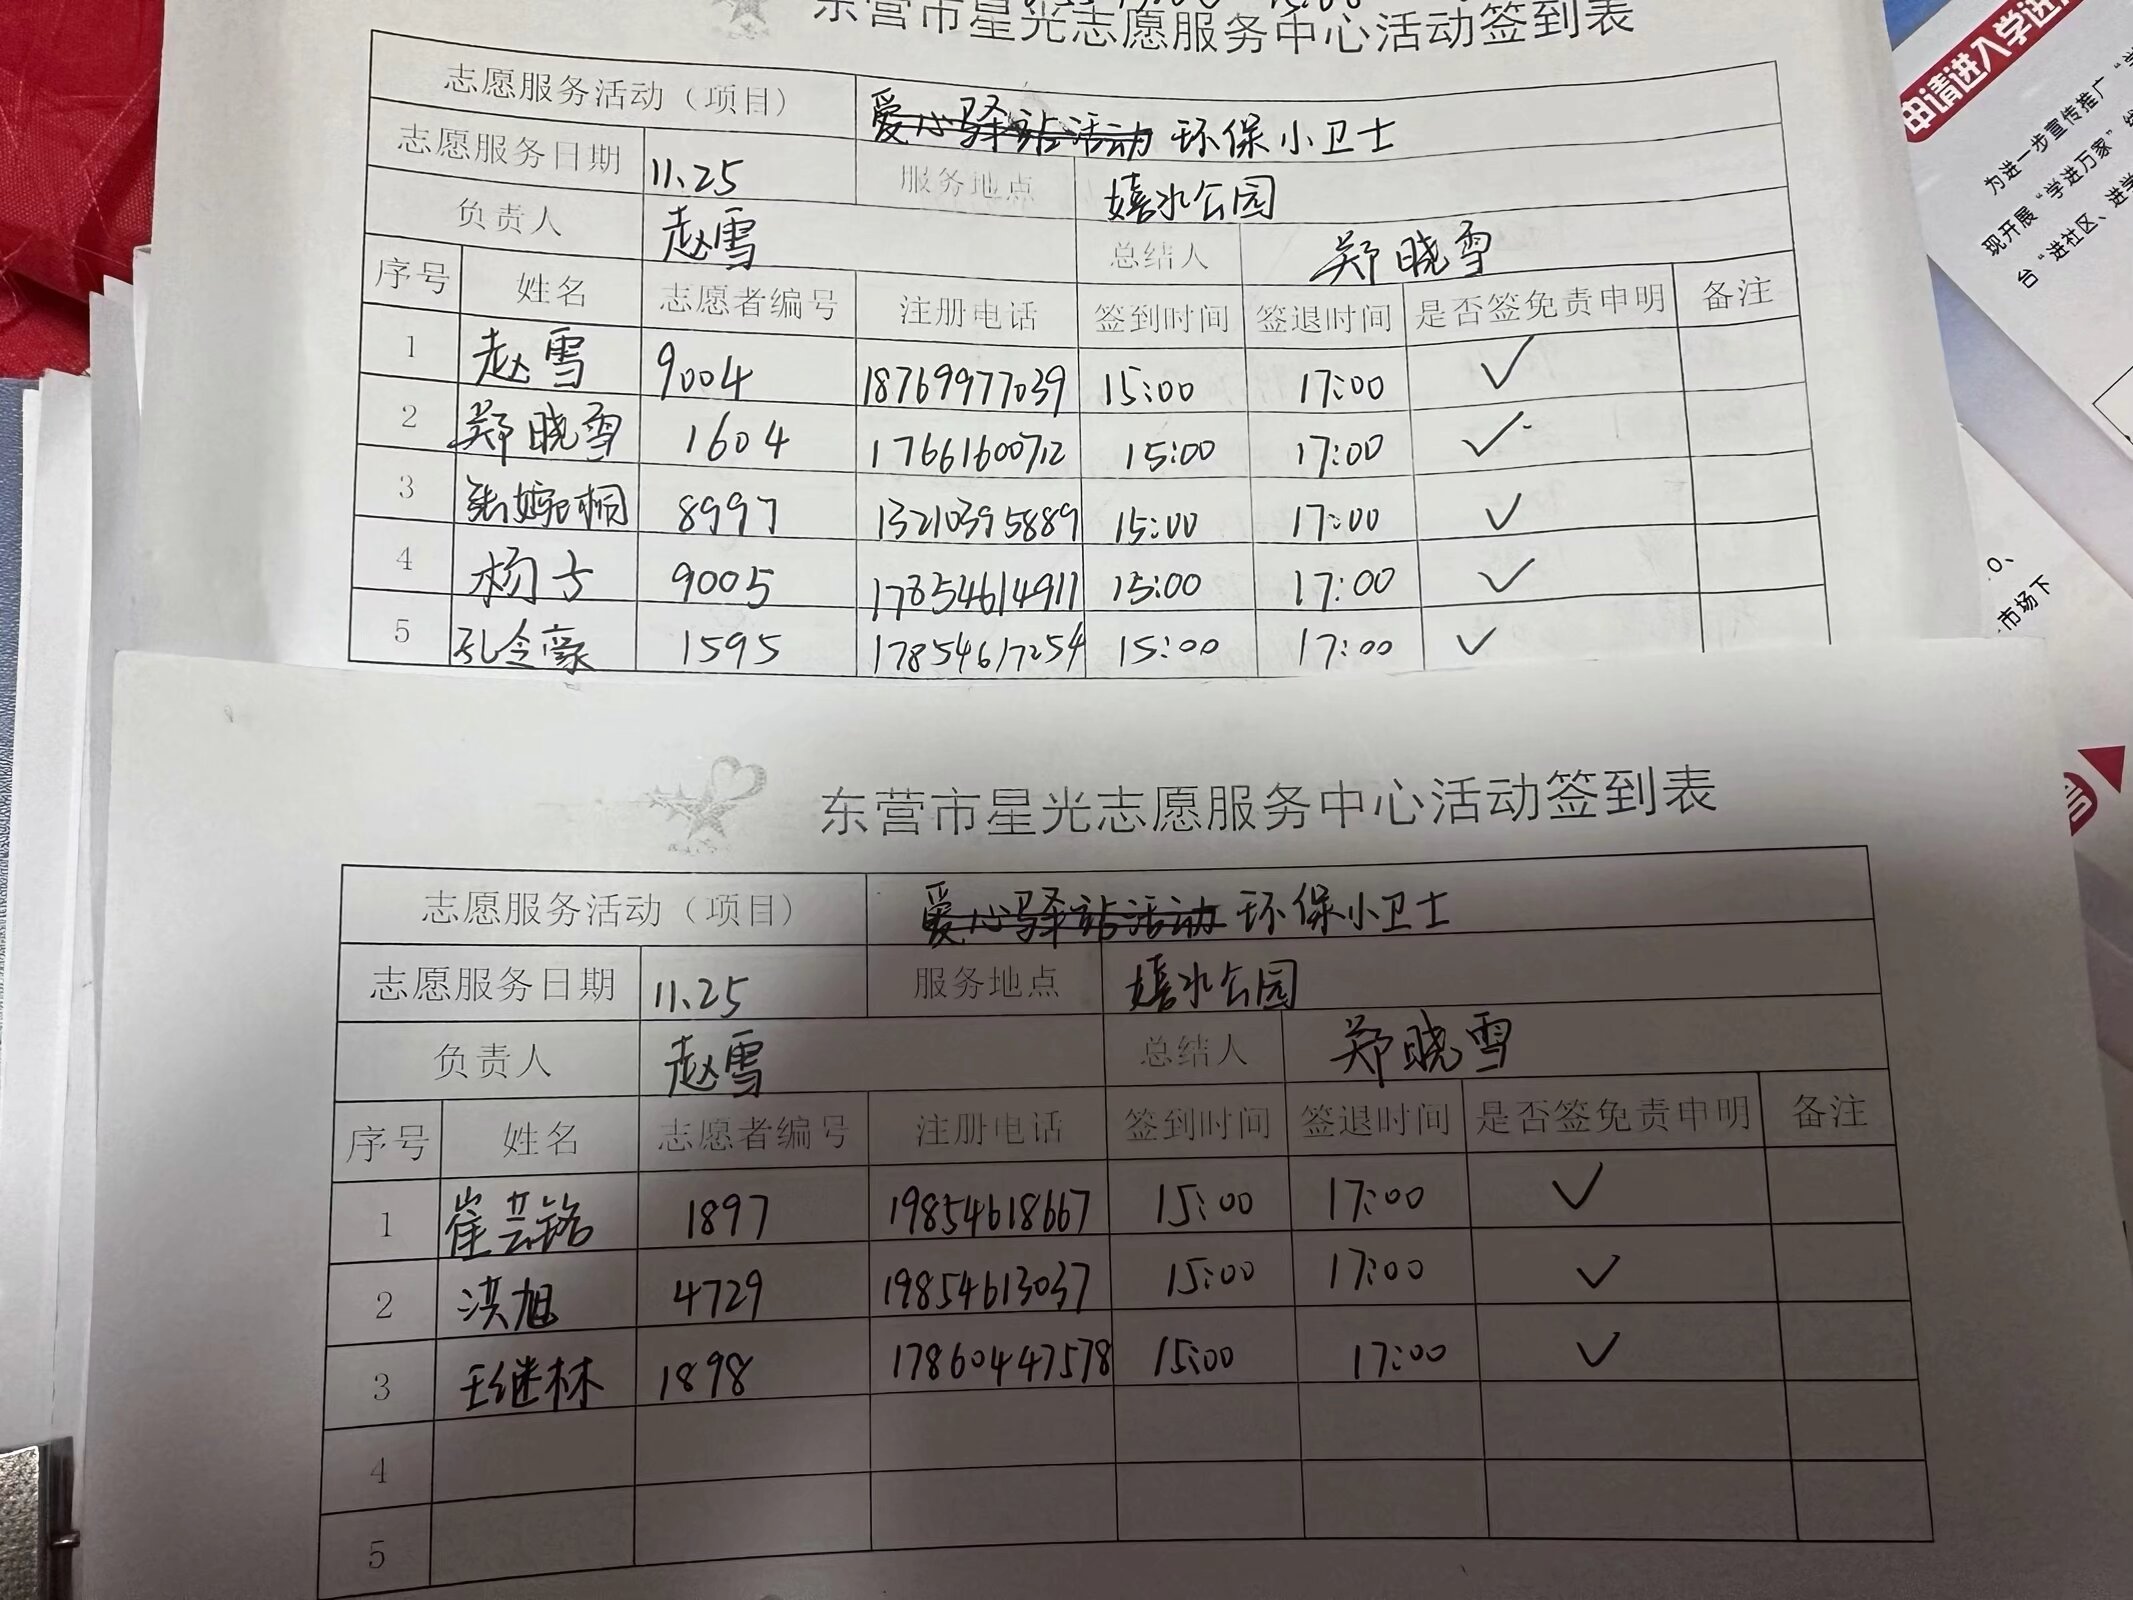 东营市星光志愿服务中心活动签到表
志愿服务活动（项目） 爱心驿站活动 环保小卫士
志愿服务日期 11.25 服务地点 嬉水公园
负责人 赵雪 总结人 郑晓雪
序号 姓名 志愿者编号 注册电话 签到时间 签退时间 是否签免责申明 备注
1 赵雪 9004 18769977039 15:00 17:00 ✓
2 郑晓雪 1604 17661600712 15:00 17:00 ✓
3 张婉桐 8997 13210395889 15:00 17:00 ✓
4 杨士 9005 17854614911 15:00 17:00 ✓
5 孔令豪 1595 17854617254 15:00 17:00 ✓
东营市星光志愿服务中心活动签到表
志愿服务活动（项目） 爱心驿站活动 环保小卫士
志愿服务日期 11.25 服务地点 嬉水公园
负责人 赵雪 总结人 郑晓雪
序号 姓名 志愿者编号 注册电话 签到时间 签退时间 是否签免责申明 备注
1 崔芸铭 1897 19854618667 15:00 17:00 ✓
2 洪旭 4729 19854613037 15:00 17:00 ✓
3 王继林 1898 17860447578 15:00 17:00 ✓
4
5
申请进入学进
为进一步宣传推广“学
现开展“学进万家”
台“进社区、进学
市场下